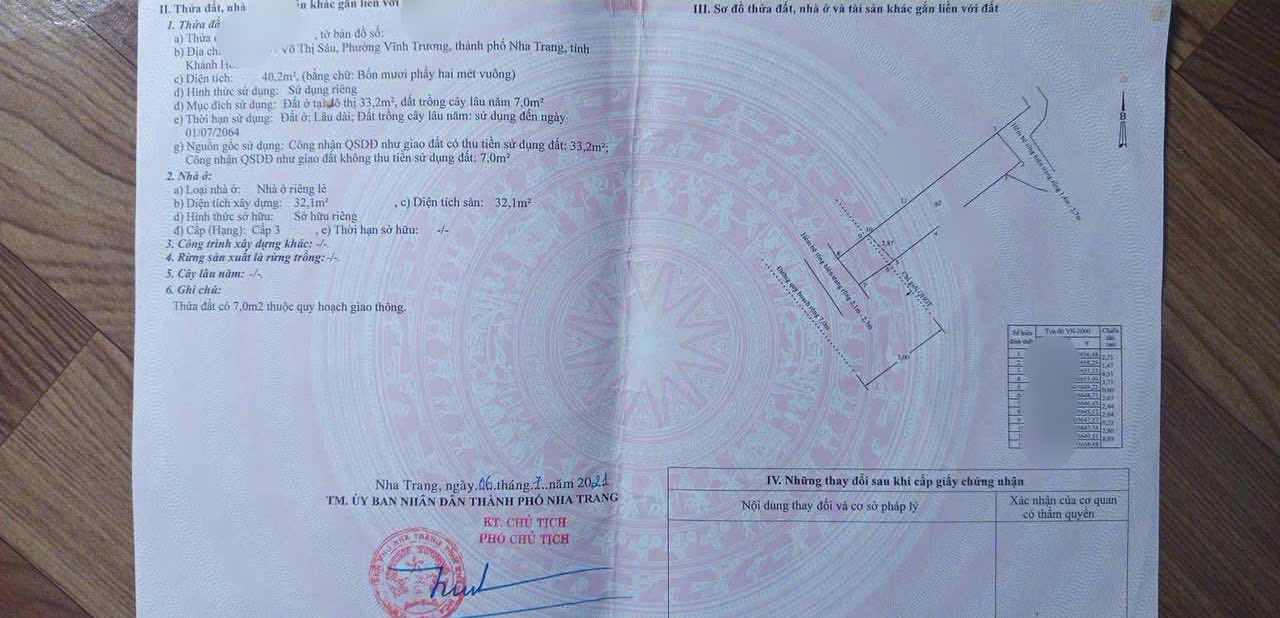 II. Thửa đất, nhà ... ản khác gắn liền với
1. Thửa đấ
a) Thửa đ , tờ bản đồ số:
b) Địa ch. Võ Thị Sáu, Phường Vĩnh Trường, thành phố Nha Trang, tỉnh
Khánh H
c) Diện tích: 40,2m², (bằng chữ: Bốn mươi phẩy hai mét vuông)
d) Hình thức sử dụng: Sử dụng riêng
đ) Mục đích sử dụng: Đất ở tại đô thị 33,2m², đất trồng cây lâu năm 7,0m²
e) Thời hạn sử dụng: Đất ở: Lâu dài; Đất trồng cây lâu năm: sử dụng đến ngày
01/07/2064
g) Nguồn gốc sử dụng: Công nhận QSDĐ như giao đất có thu tiền sử dụng đất: 33,2m²;
Công nhận QSDĐ như giao đất không thu tiền sử dụng đất: 7,0m²
2. Nhà ở:
a) Loại nhà ở: Nhà ở riêng lẻ
b) Diện tích xây dựng: 32,1m² , c) Diện tích sàn: 32,1m²
d) Hình thức sở hữu: Sở hữu riêng
đ) Cấp (Hạng): Cấp 3 , e) Thời hạn sở hữu: -/-
3. Công trình xây dựng khác: -/-.
4. Rừng sản xuất là rừng trồng:-/-.
5. Cây lâu năm: -/-.
6. Ghi chú:
Thửa đất có 7,0m2 thuộc quy hoạch giao thông.
Nha Trang, ngày.06.tháng.7..năm 2021
TM. ỦY BAN NHÂN DÂN THÀNH PHỐ NHA TRANG
KT. CHỦ TỊCH
PHÓ CHỦ TỊCH
III. Sơ đồ thửa đất, nhà ở và tài sản khác gắn liền với đất
B
Hẻm bê tông hiện trạng rộng 1,4m - 2,7m
11
82
10
2,87
4
Chỉ giới QHĐT
Hẻm bê tông hiện trạng rộng 2,1m - 2,3m
Đường quy hoạch rộng 7,0m
7,00
Số hiệu đỉnh thửa
Tọa độ VN-2000
Y
Chiều dài (m)
2,71
1,47
6,51
3,71
0,60
2,67
2,44
2,64
0,21
2,80
8,89
IV. Những thay đổi sau khi cấp giấy chứng nhận
Nội dung thay đổi và cơ sở pháp lý
Xác nhận của cơ quan
có thẩm quyền